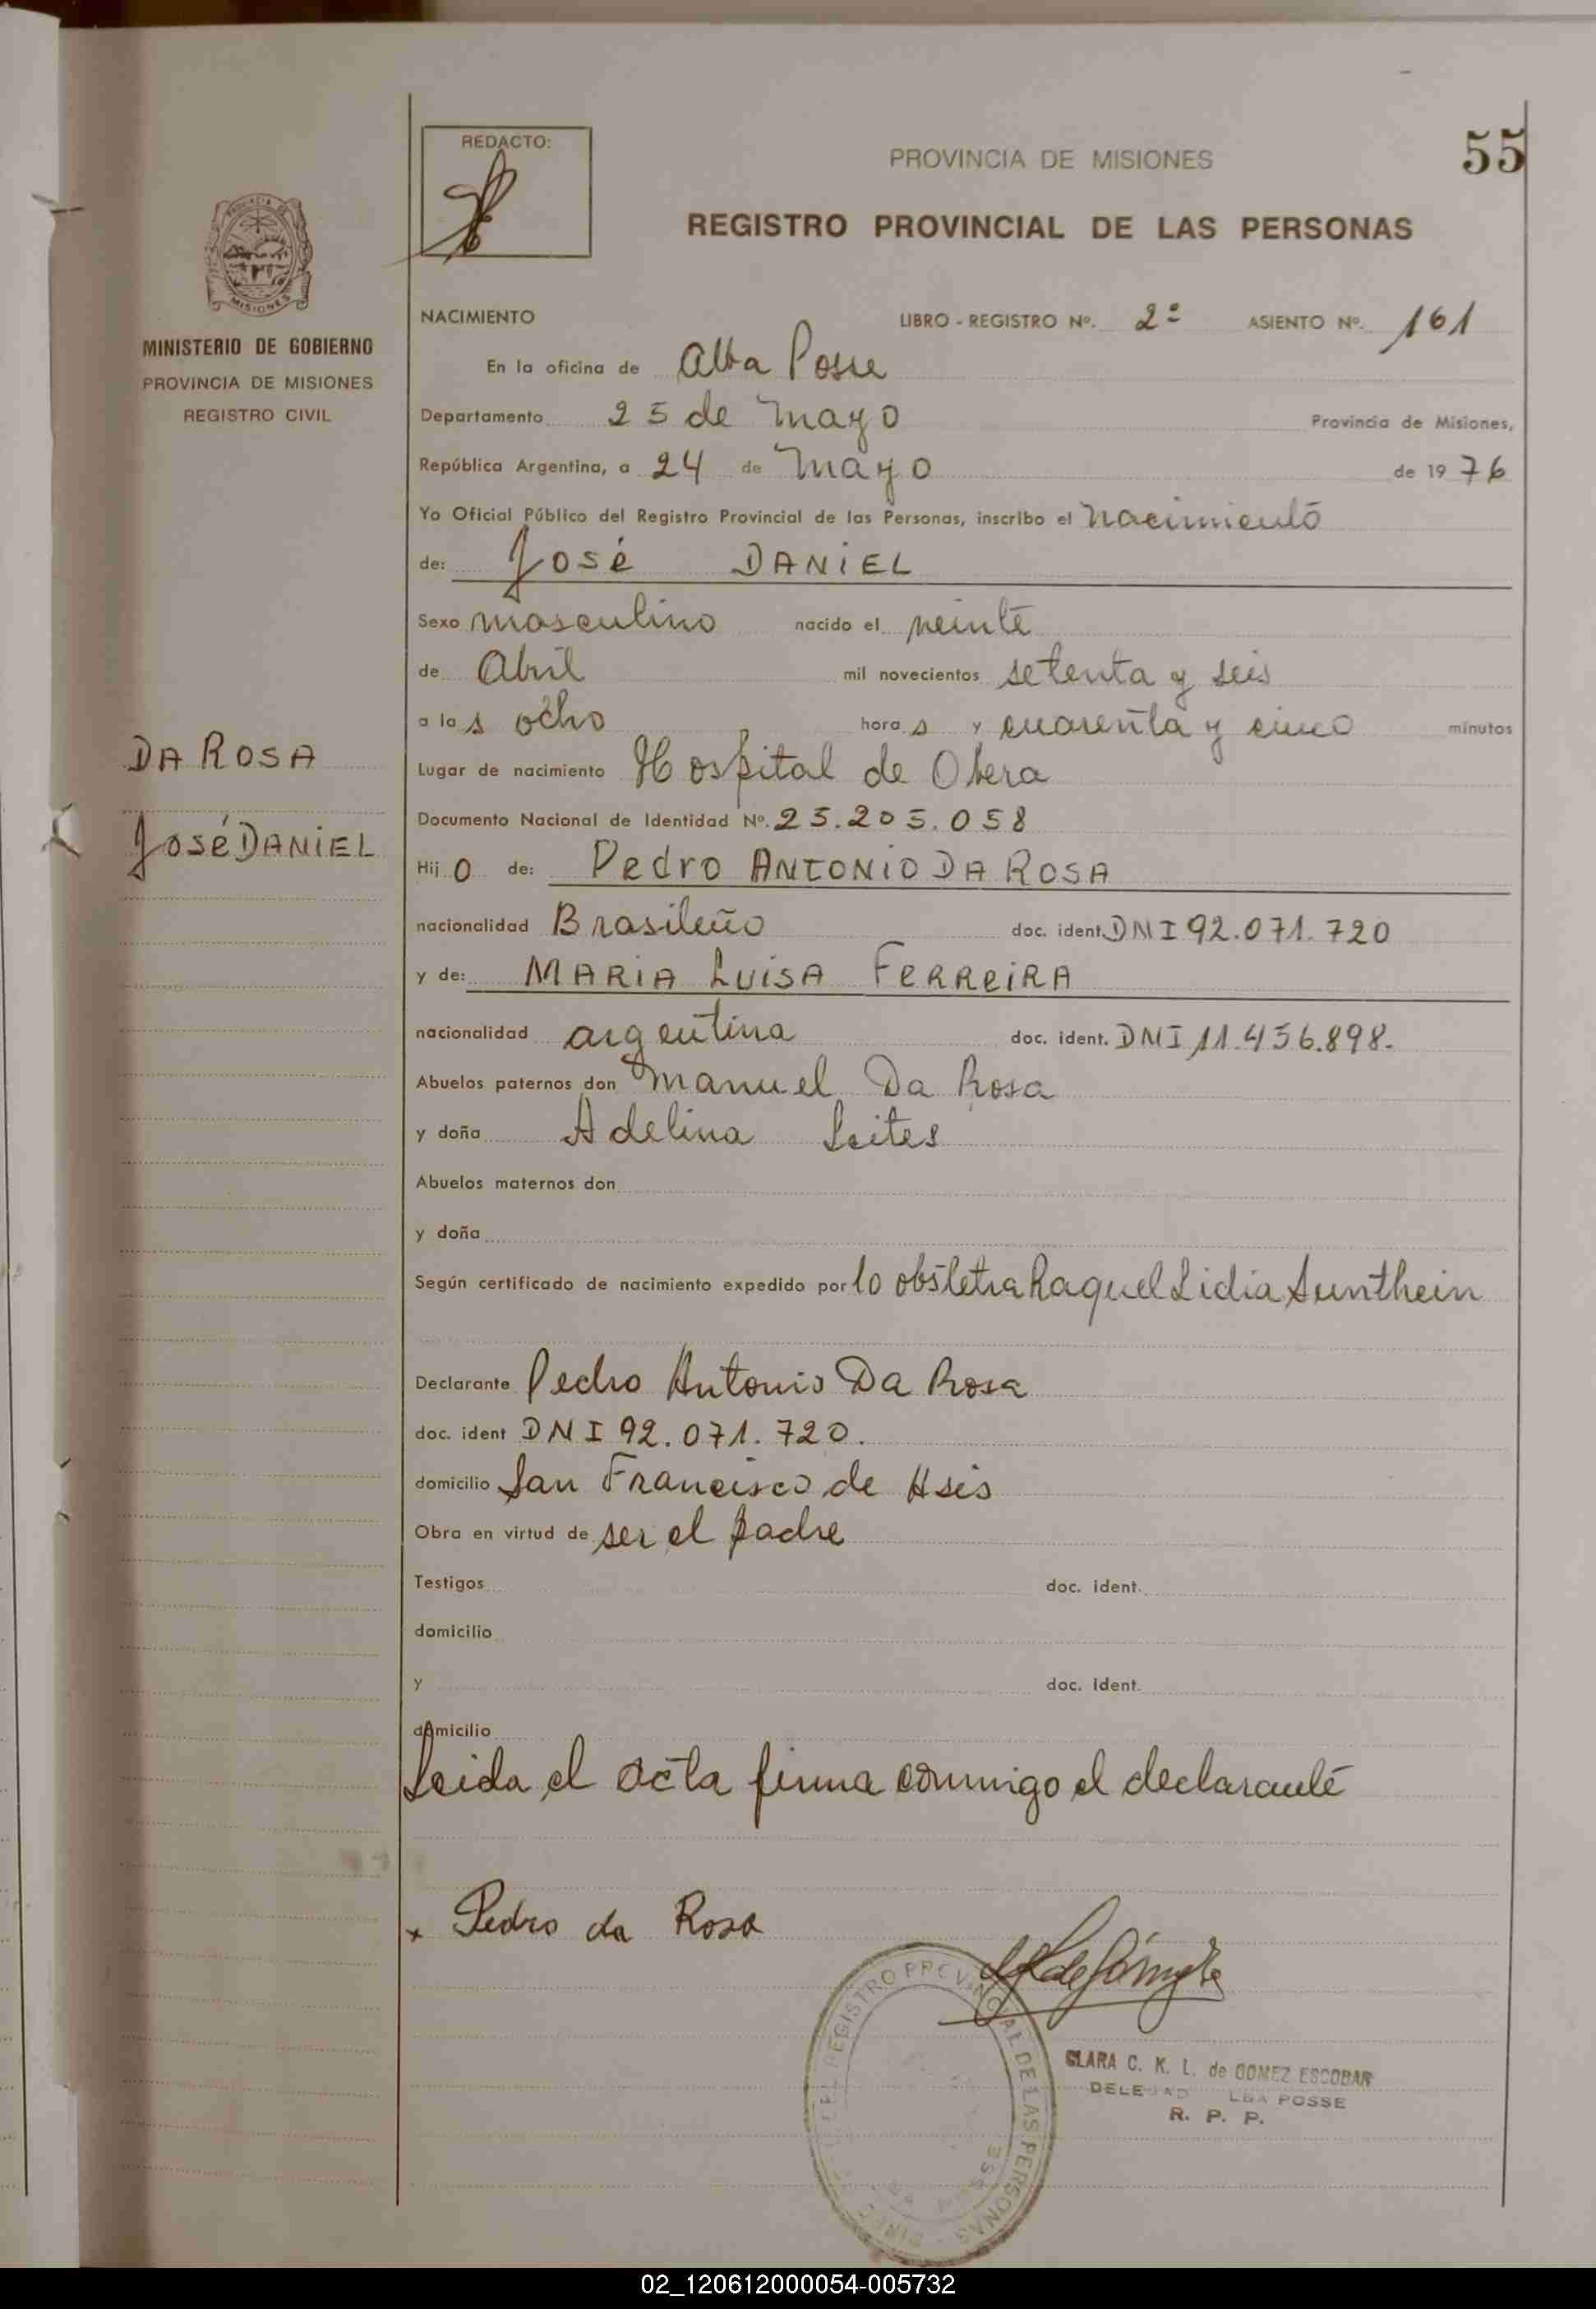 REDACTO:
PROVINCIA DE MISIONES
55
REGISTRO PROVINCIAL DE LAS PERSONAS
MINISTERIO DE GOBIERNO
PROVINCIA DE MISIONES
REGISTRO CIVIL
NACIMIENTO LIBRO - REGISTRO Nº. 2º ASIENTO Nº. 161
En la oficina de Alba Posse
Departamento 25 de Mayo Provincia de Misiones,
República Argentina, a 24 de Mayo de 1976
Yo Oficial Público del Registro Provincial de las Personas, inscribo el nacimiento
de: José DANIEL
Sexo masculino nacido el veinte
de Abril mil novecientos setenta y seis
a las ocho horas y cuarenta y cinco minutos
DA ROSA
Lugar de nacimiento Hospital de Obera
Documento Nacional de Identidad Nº. 25.205.058
José DANIEL
Hijo de: Pedro ANTONIO DA ROSA
nacionalidad Brasileño doc. ident. DNI 92.071.720
y de: MARIA LUISA FERREIRA
nacionalidad argentina doc. ident. DNI 11.456.898.
Abuelos paternos don Manuel Da Rosa
y doña Adelina Leites
Abuelos maternos don
y doña
Según certificado de nacimiento expedido por la obstetra Raquel Lidia Sunthein
Declarante Pedro Antonio Da Rosa
doc. ident DNI 92.071.720.
domicilio San Francisco de Asis
Obra en virtud de ser el padre
Testigos doc. ident.
domicilio
y doc. ident.
domicilio
Leida el acta firma conmigo el declarante
x Pedro da Rosa
REGISTRO PROVINCIAL DE LAS PERSONAS
CLARA C. K. L. de GOMEZ ESCOBAR
R. P. P.
02_120612000054-005732